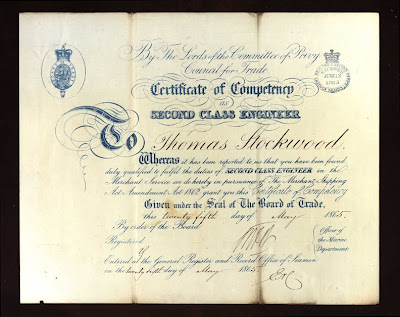 By The Lords of the Committee of Privy
Council for Trade
Certificate of Competency
as
SECOND CLASS ENGINEER
To Thomas Stockwood.
Whereas it has been reported to us that you have been found
duly qualified to fulfil the duties of SECOND CLASS ENGINEER in the
Merchant Service we do hereby in pursuance of The Merchant Shipping
Act Amendment Act 1862 grant you this Certificate of Competency
Given under the Seal of The Board of Trade,
this twenty fifth day of May 1865.
By order of the Board
Officer of
the Marine
Department
Registered
Entered at the General Register and Record Office of Seamen
on the twenty sixth day of May 1865